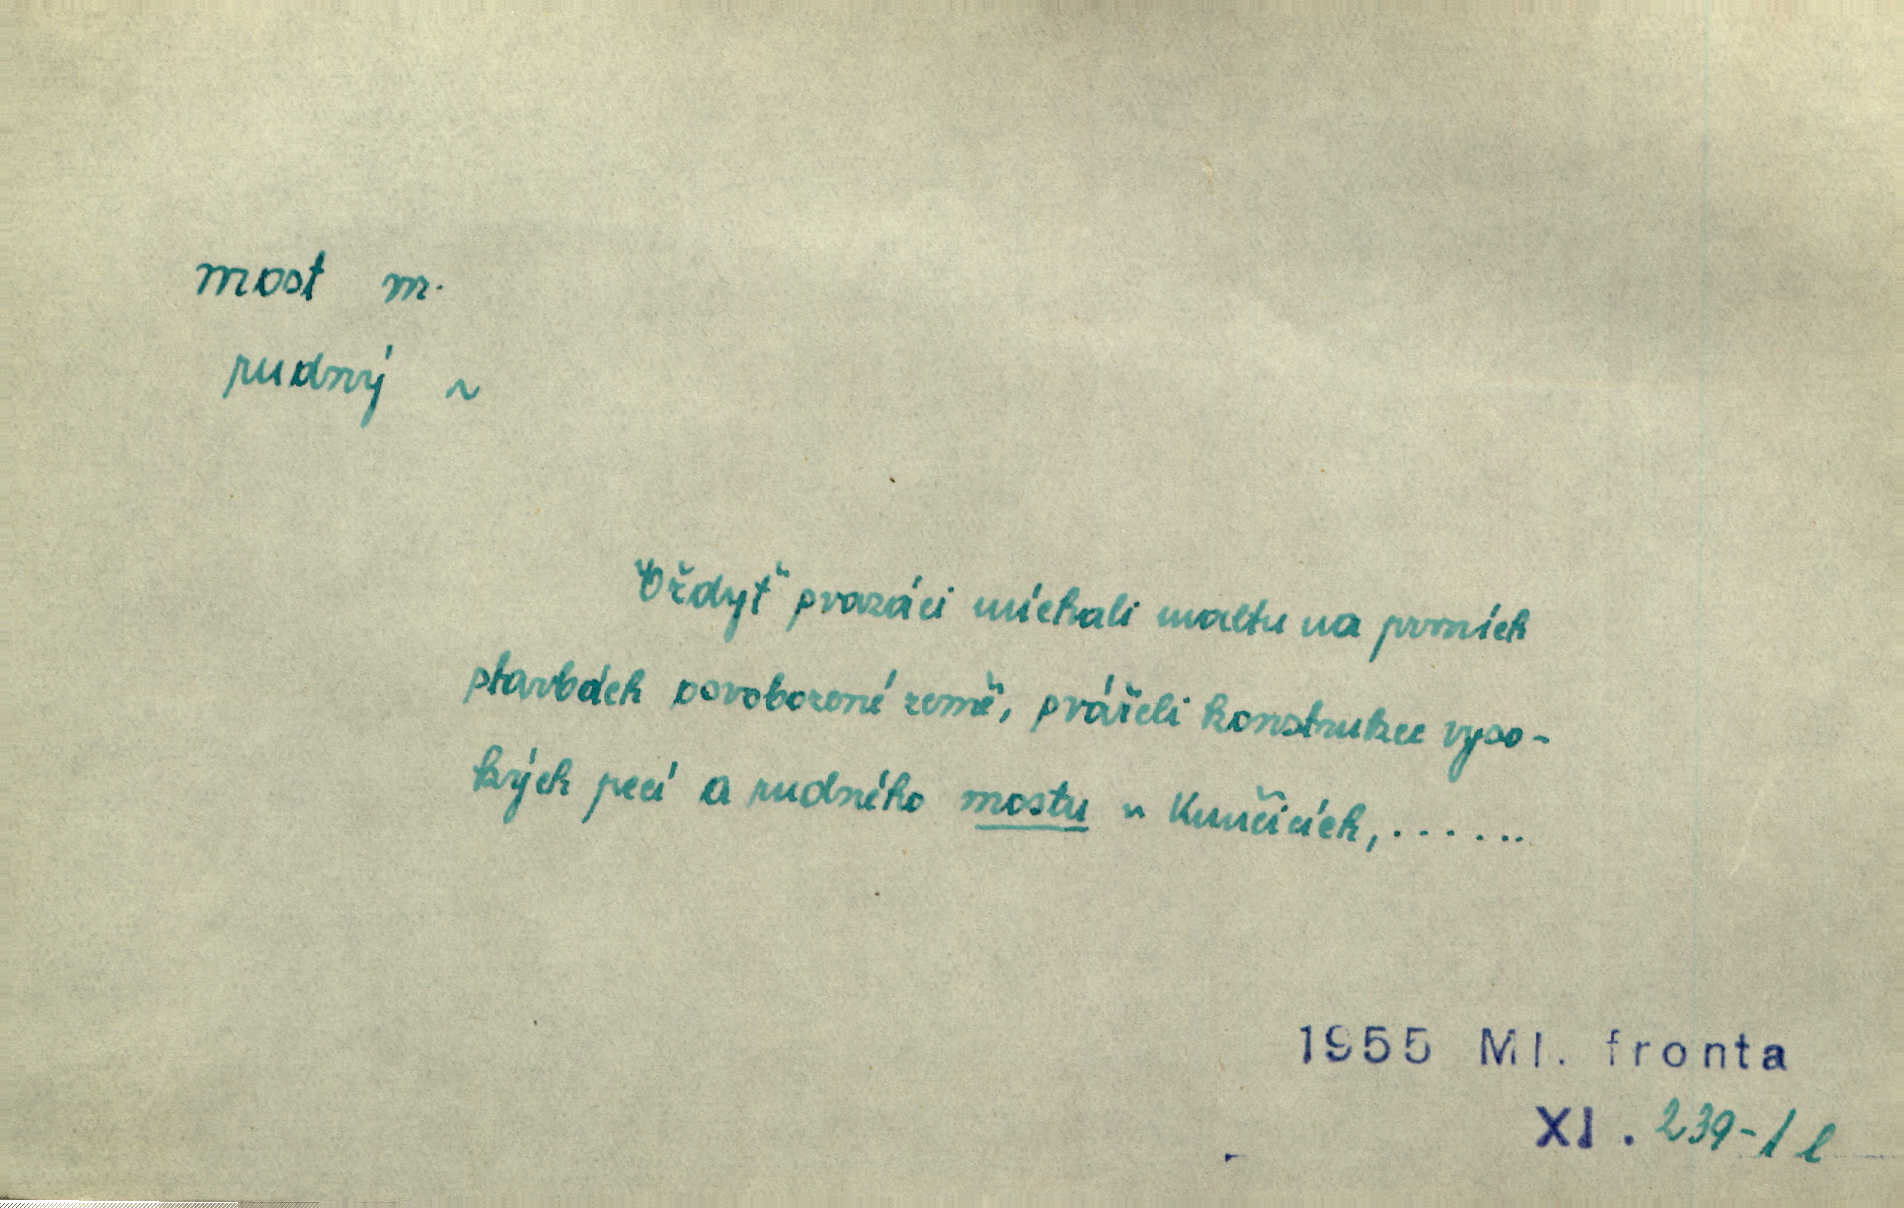 most m.
rudný ~
Vždyť svazáci míchali maltu na prvních
stavbách osvobozené země, svářeli konstrukce vyso-
kých pecí a rudného mostu v Kunčicích, . . . . . .
1955 Ml. fronta
XI. 239-1 l